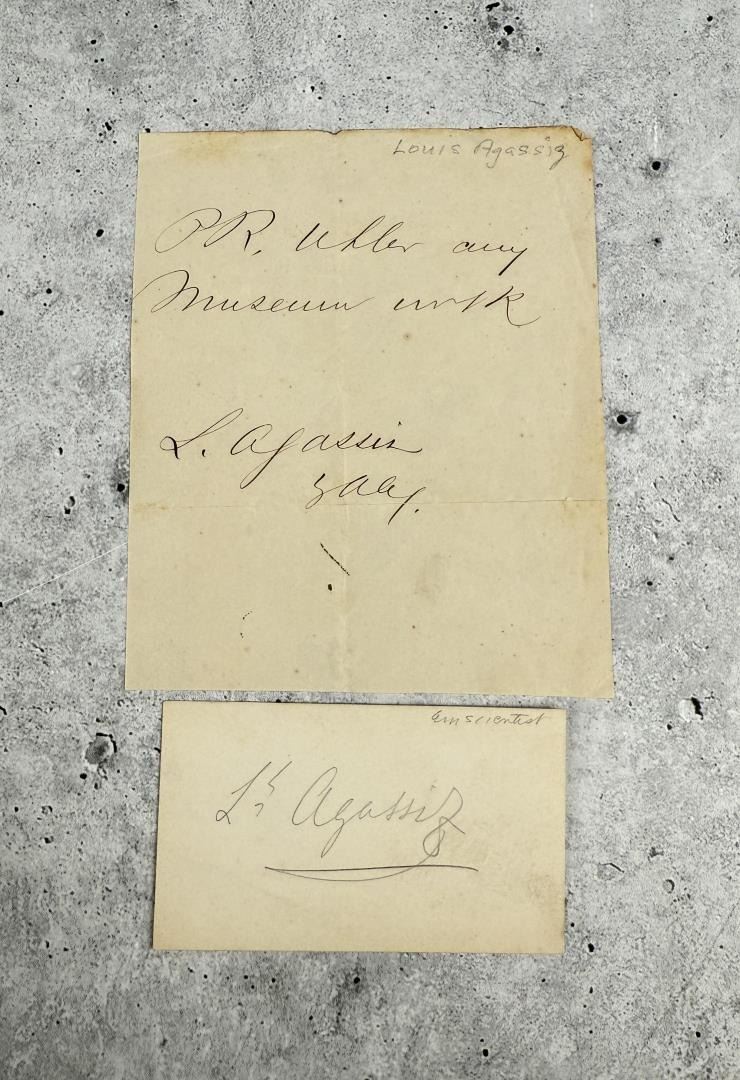 Louis Agassiz
P R. Uhler any
Museum work
L. Agassiz
Em scientist
Ls Agassiz